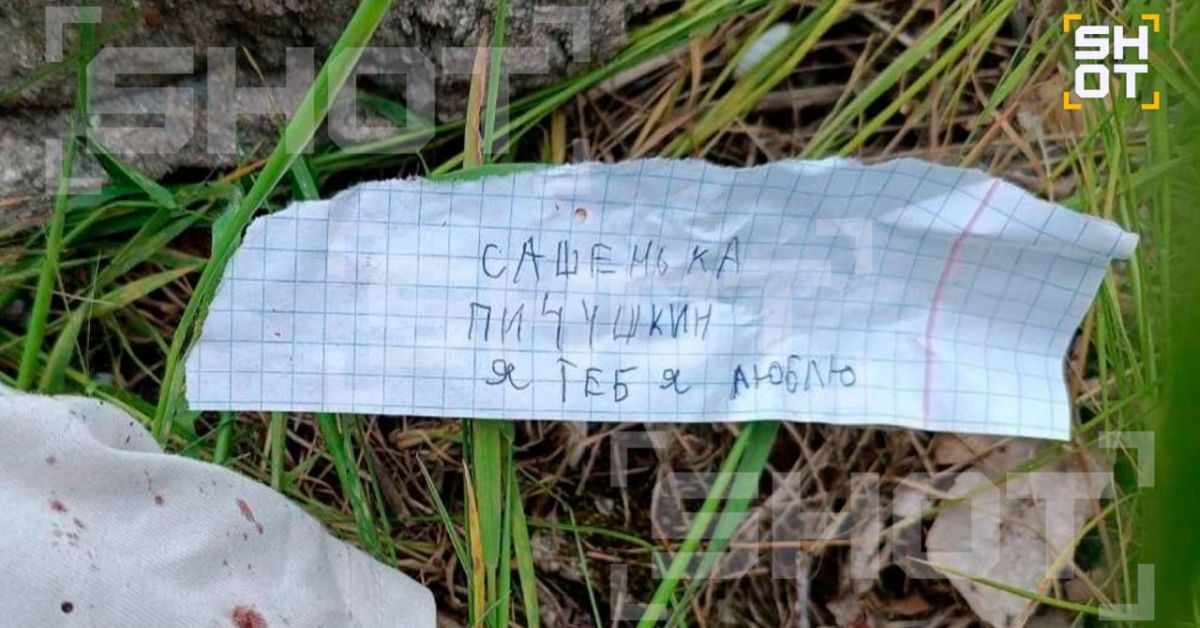 SHOT
SH
OT
САШЕНЬКА
ПИЧУШКИН
Я ТЕБЯ ЛЮБЛЮ
SHOT